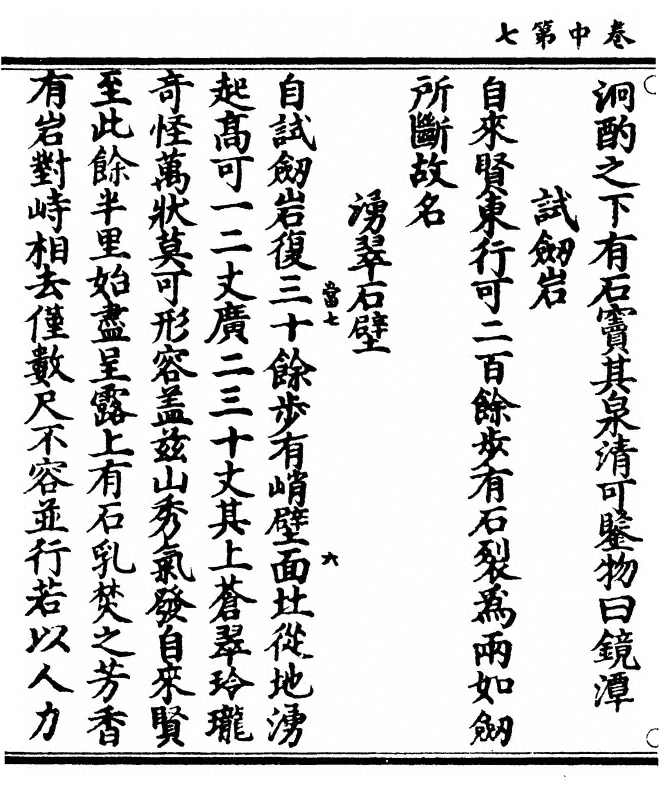 卷中第七
泂酌之下有石竇其泉清可鑒物曰鏡潭
試劒岩
自來賢東行可二百餘步有石裂爲兩如劒
所斷故名
湧翠石壁
自試劒岩復三十餘步有峭壁面北從地湧
當七
六
起高可一二丈廣二三十丈其上蒼翠玲瓏
奇怪萬狀莫可形容盖兹山秀氣發自來賢
至此餘半里始盡呈露上有石乳焚之芳香
有岩對峙相去僅數尺不容並行若以人力